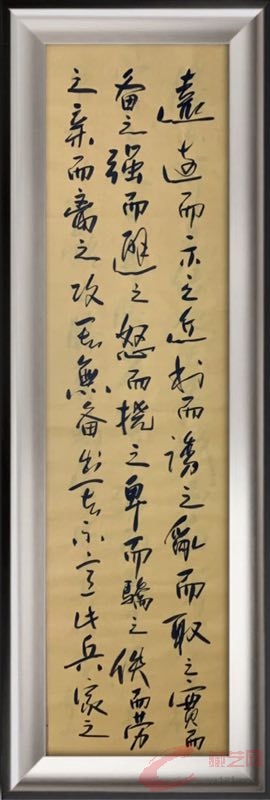 遠遠而示之近利而誘之亂而取之實而
备之强而避之怒而撓之卑而驕之佚而劳
之親而離之攻其無备出其不意此兵家之